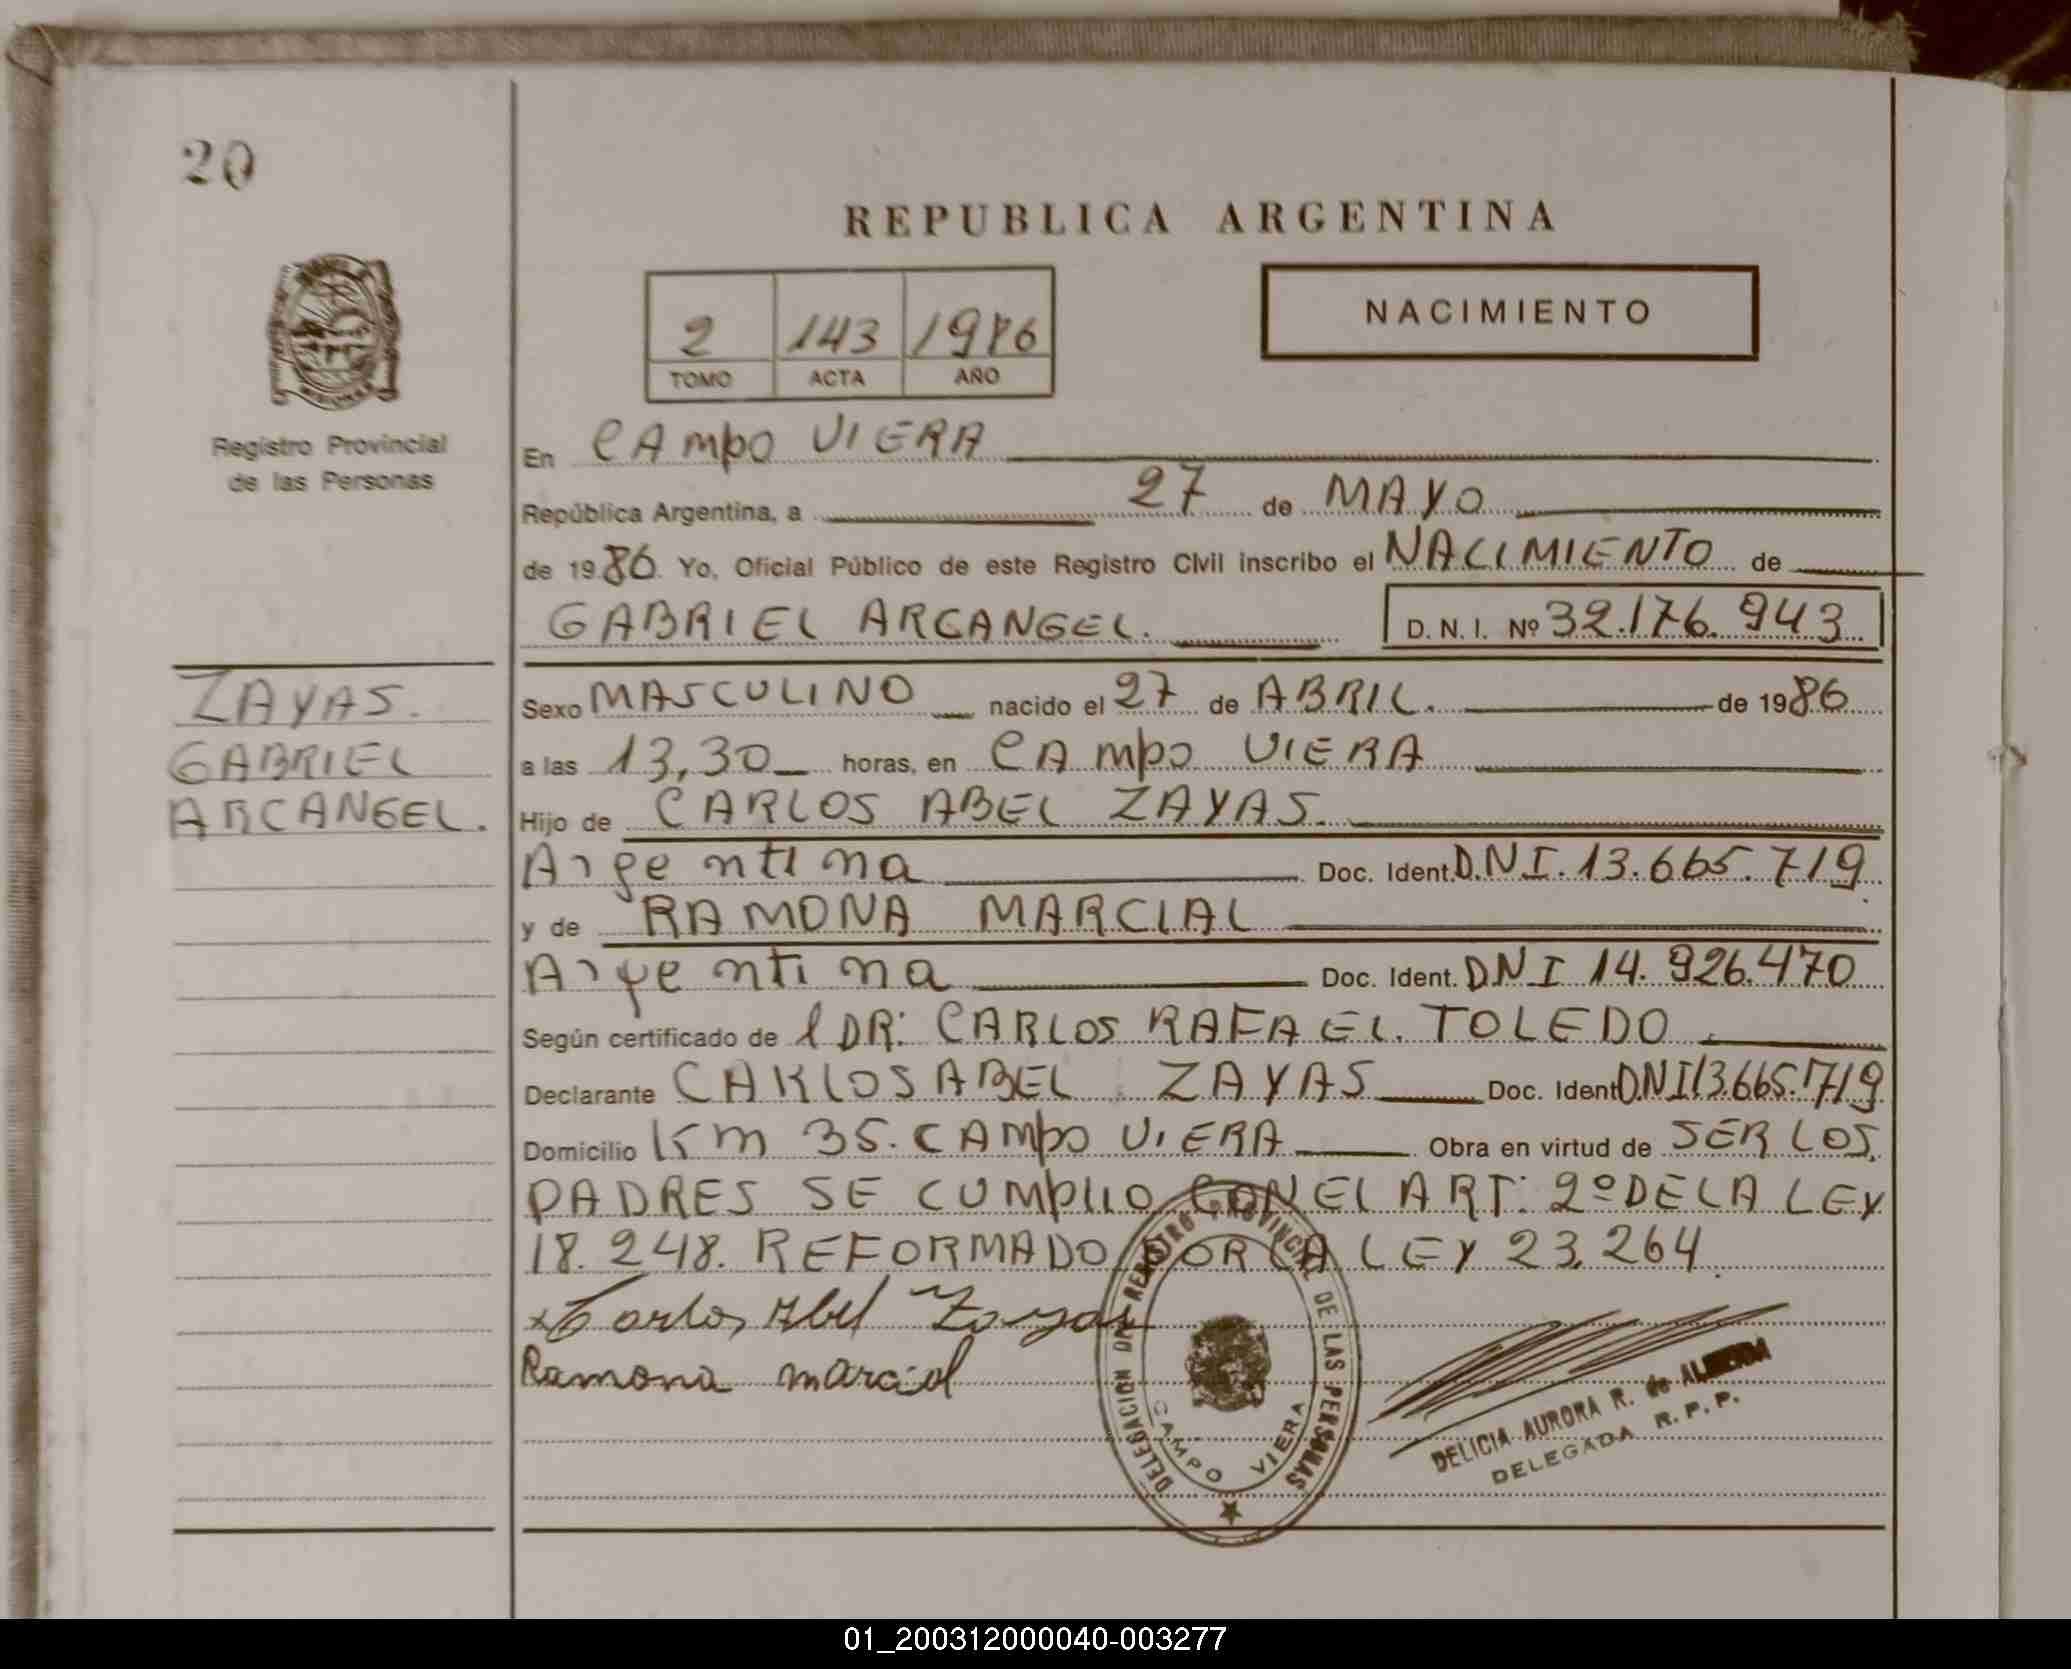 20
REPUBLICA ARGENTINA
2 143 1986
TOMO ACTA AÑO
NACIMIENTO
Registro Provincial
de las Personas
En CAMPO VIERA
República Argentina, a 27 de MAYO
de 1986. Yo, Oficial Público de este Registro Civil inscribo el NACIMIENTO de
GABRIEL ARCANGEL. D. N. I. Nº 32.176.943
ZAYAS.
GABRIEL
ARCANGEL.
Sexo MASCULINO nacido el 27 de ABRIL. de 1986
a las 13,30 horas, en CAMPO VIERA
Hijo de CARLOS ABEL ZAYAS.
Argentina Doc. Ident. D.N.I. 13.665.719
y de RAMONA MARCIAL
Argentina Doc. Ident. DNI 14.926.470
Según certificado de l DR: CARLOS RAFAEL TOLEDO
Declarante CARLOS ABEL ZAYAS Doc. Ident D.N.I 13.665.719
Domicilio Km 35. CAMPO VIERA Obra en virtud de SER LOS
PADRES SE CUMPLIO CON EL ART: 2º DE LA LEY
18.248. REFORMADO POR LA LEY 23.264
x Carlos Abel Zayas
Ramona marcial
DELEGACION DEL REGISTRO PROVINCIAL DE LAS PERSONAS
CAMPO VIERA
DELICIA AURORA R. de ALMEIDA
DELEGADA R. P. P.
01_200312000040-003277